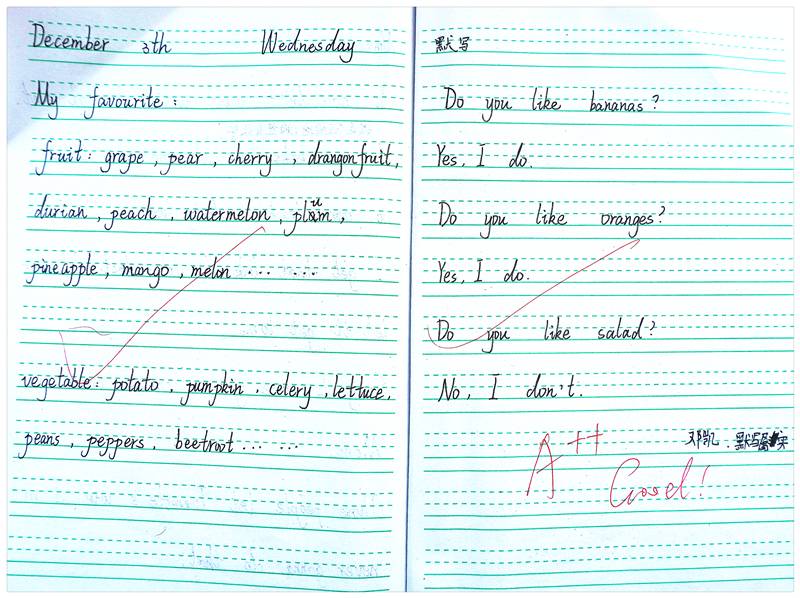 December 3th Wednesday
My favourite:
fruit: grape, pear, cherry, drangonfruit,
durian, peach, watermelon, plum,
pineapple, mango, melon ... ...
vegetable: potato, pumpkin, celery, lettuce,
peans, peppers, beetroot ... ...
默写
Do you like bananas?
Yes, I do.
Do you like oranges?
Yes, I do.
Do you like salad?
No, I don't.
A++
Good!
邓凯 默写